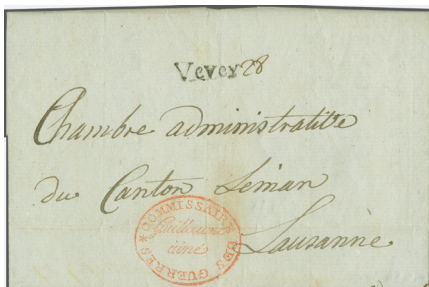 Vevey 28
Chambre administrative
du Canton Léman
COMMISSAIRE DES GUERRES
Guillaume
ainé
Lausanne